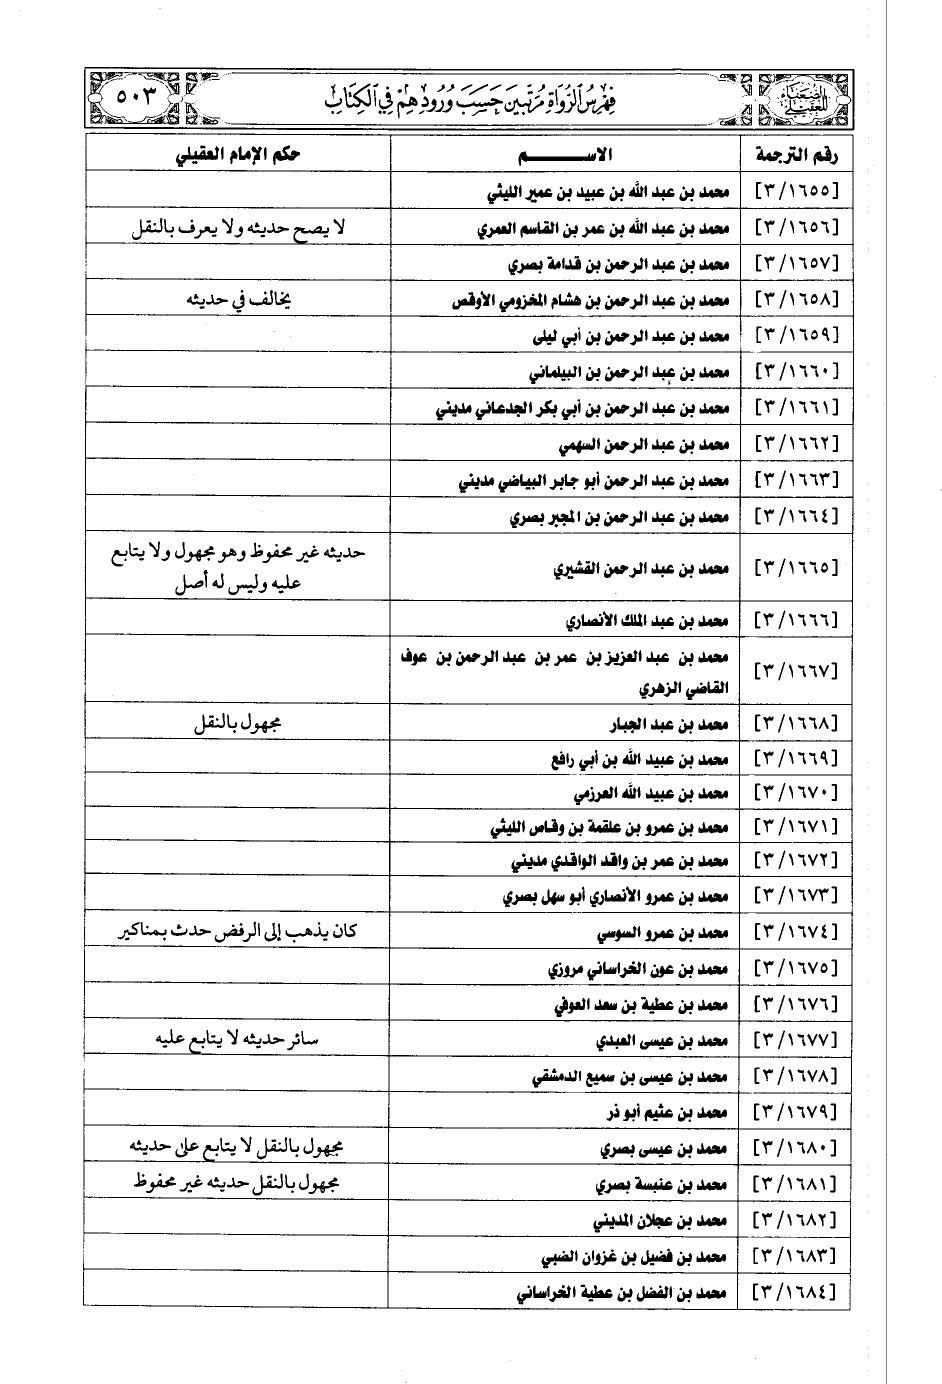 الضعفاء للعقيلي
فهرس الرواة مرتبين حسب ورودهم في الكتاب
٥٠٣
رقم الترجمة الاســــــــم حكم الإمام العقيلي
[٣/١٦٥٥] محمد بن عبد الله بن عبيد بن عمير الليثي
[٣/١٦٥٦] محمد بن عبد الله بن عمر بن القاسم العمري لا يصح حديثه ولا يعرف بالنقل
[٣/١٦٥٧] محمد بن عبد الرحمن بن قدامة بصري
[٣/١٦٥٨] محمد بن عبد الرحمن بن هشام المخزومي الأوقص يخالف في حديثه
[٣/١٦٥٩] محمد بن عبد الرحمن بن أبي ليلى
[٣/١٦٦٠] محمد بن عبد الرحمن بن البيلماني
[٣/١٦٦١] محمد بن عبد الرحمن بن أبي بكر الجدعاني مديني
[٣/١٦٦٢] محمد بن عبد الرحمن السهمي
[٣/١٦٦٣] محمد بن عبد الرحمن أبو جابر البياضي مديني
[٣/١٦٦٤] محمد بن عبد الرحمن بن المجبر بصري
[٣/١٦٦٥] محمد بن عبد الرحمن القشيري حديثه غير محفوظ وهو مجهول ولا يتابع
عليه وليس له أصل
[٣/١٦٦٦] محمد بن عبد الملك الأنصاري
[٣/١٦٦٧] محمد بن عبد العزيز بن عمر بن عبد الرحمن بن عوف
القاضي الزهري
[٣/١٦٦٨] محمد بن عبد الجبار مجهول بالنقل
[٣/١٦٦٩] محمد بن عبيد الله بن أبي رافع
[٣/١٦٧٠] محمد بن عبيد الله العرزمي
[٣/١٦٧١] محمد بن عمرو بن علقمة بن وقاص الليثي
[٣/١٦٧٢] محمد بن عمر بن واقد الواقدي مديني
[٣/١٦٧٣] محمد بن عمرو الأنصاري أبو سهل بصري
[٣/١٦٧٤] محمد بن عمرو السوسي كان يذهب إلى الرفض حدث بمناكير
[٣/١٦٧٥] محمد بن عون الخراساني مروزي
[٣/١٦٧٦] محمد بن عطية بن سعد العوفي
[٣/١٦٧٧] محمد بن عيسى العبدي سائر حديثه لا يتابع عليه
[٣/١٦٧٨] محمد بن عيسى بن سميع الدمشقي
[٣/١٦٧٩] محمد بن عثيم أبو ذر
[٣/١٦٨٠] محمد بن عيسى بصري مجهول بالنقل لا يتابع على حديثه
[٣/١٦٨١] محمد بن عنبسة بصري مجهول بالنقل حديثه غير محفوظ
[٣/١٦٨٢] محمد بن عجلان المديني
[٣/١٦٨٣] محمد بن فضيل بن غزوان الضبي
[٣/١٦٨٤] محمد بن الفضل بن عطية الخراساني